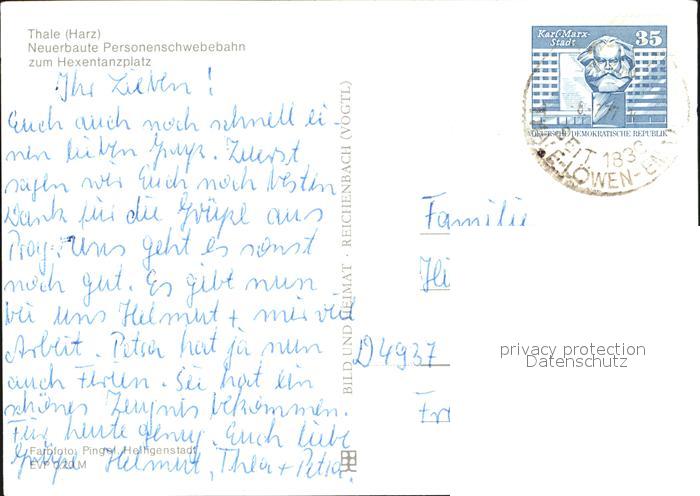 Thale (Harz)
Neuerbaute Personenschwebebahn
zum Hexentanzplatz
Ihr Lieben!
Euch auch noch schnell ei-
nen lieben Gruß. Zuerst
sagen wir Euch noch besten
Dank für die Grüße aus
Prag. Uns geht es sonst
noch gut. Es gibt nun
bei uns Helmut + mir viel
Arbeit. Petra hat ja nun
auch Ferien. Sie hat ein
schönes Zeugnis bekommen.
Für heute genug. Euch liebe
Grüße Helmut, Thea + Petra.
Farbfoto: Pingel, Heiligenstadt
EVP 0,20 M
BILD UND HEIMAT · REICHENBACH (VOGTL)
Karl-Marx-
Stadt
35
DEUTSCHE DEMOKRATISCHE REPUBLIK
SEIT 183
LÖWEN-
Familie
Hi
D4937
privacy protection
Datenschutz